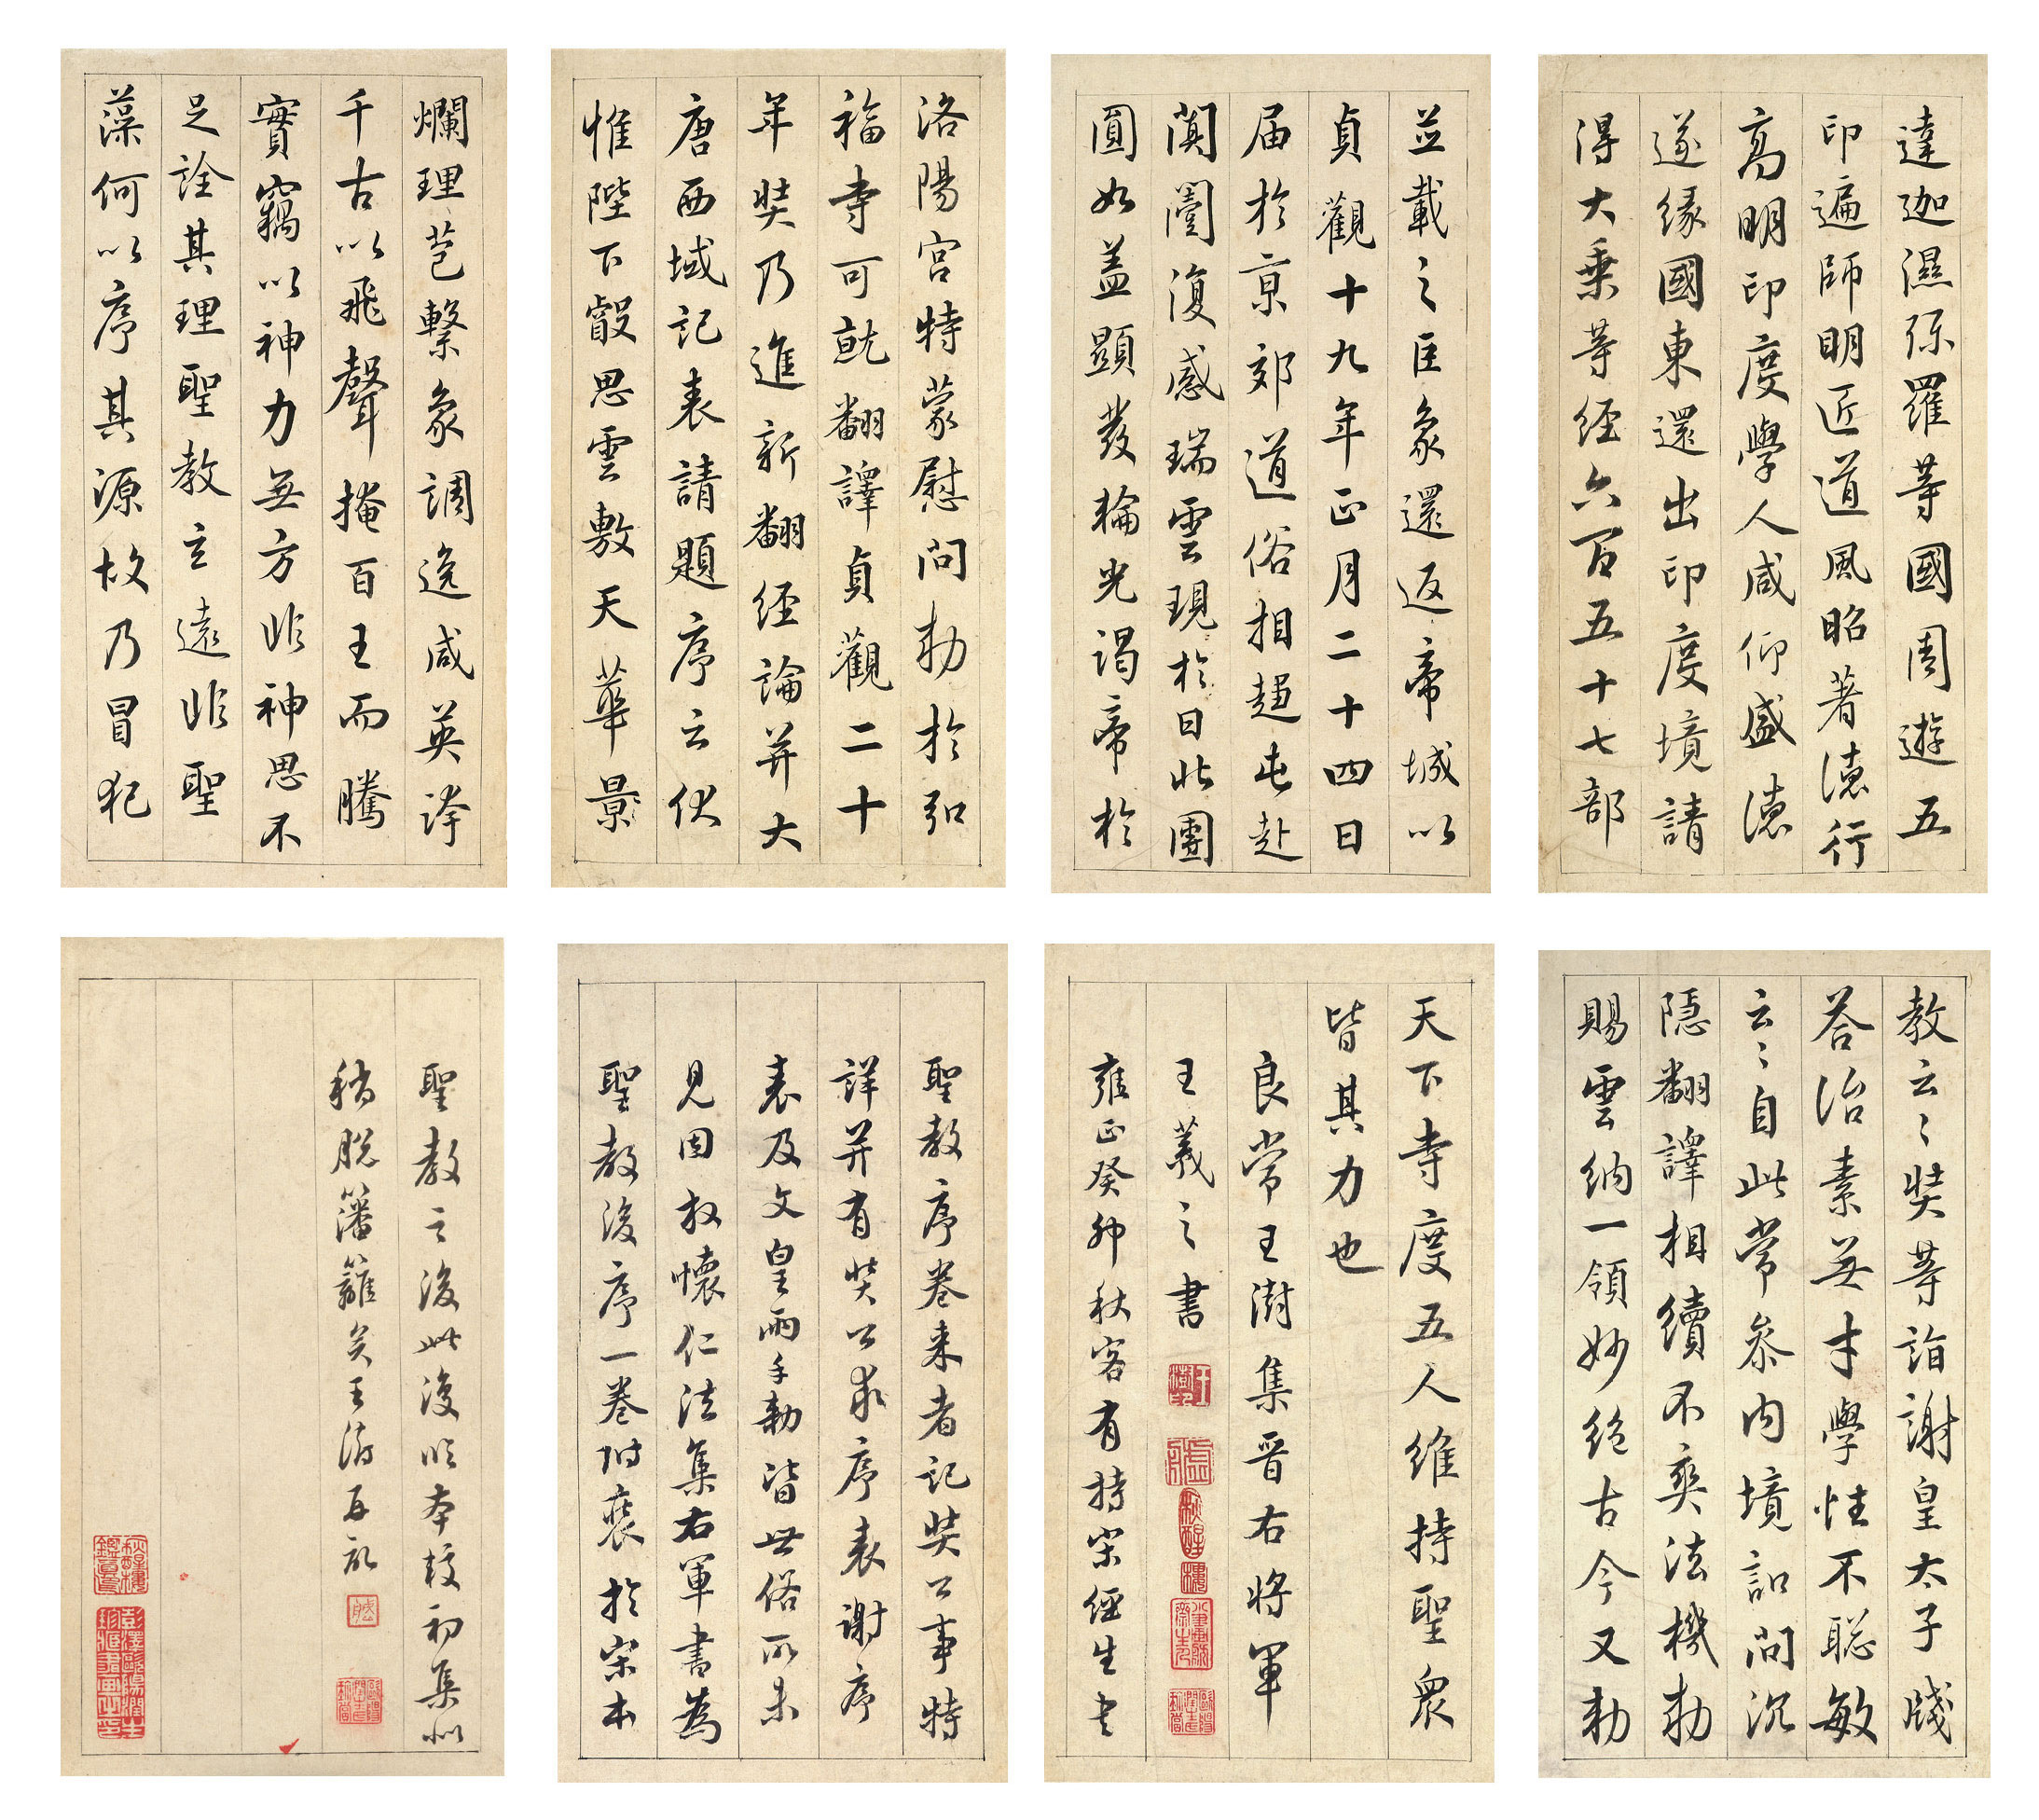 達迦濕彌羅等國周遊五
印遍師明匠道風昭著德行
高明印度學人咸仰盛德
遂緣國東還出印度境請
得大乘等經六百五十七部
並載之巨象還返帝城以
貞觀十九年正月二十四日
届於京郊道俗相趨屯赴
闐闍復感瑞雲現於日北團
圓如蓋顯發輪光謁帝於
洛陽宮特蒙慰問勅於弘
福寺可就翻譯貞觀二十
年奘乃進新翻經論并大
唐西域記表請題序云伏
惟陛下叡思雲敷天華景
爛理苞繫象調逸咸英跨
千古以飛聲掩百王而騰
實竊以神力無方非神思不
足詮其理聖教玄遠非聖
藻何以序其源故乃冒犯
教云云奘等詣謝皇太子牋
答治素無才學性不聰敏
云云自此常參內境詔問沉
隱翻譯相續不爽法機勅
賜雲納一領妙絕古今又勅
天下寺度五人維持聖衆
皆其力也
良常王澍集晉右將軍
王羲之書
雍正癸卯秋客有持宋經生書
聖教序卷来者記奘公事特
詳并有奘公求序表謝序
表及文皇兩手勅皆世俗所未
見因放懷仁法集右軍書為
聖教後序一卷附裝於宋本
聖教之後此後臨本較初集似
稍脫藩籬矣王澍再識